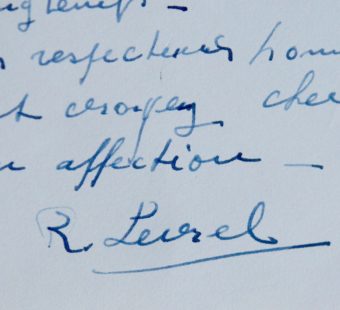 respectueux hom
et croyez che
affection —
R. Leurel